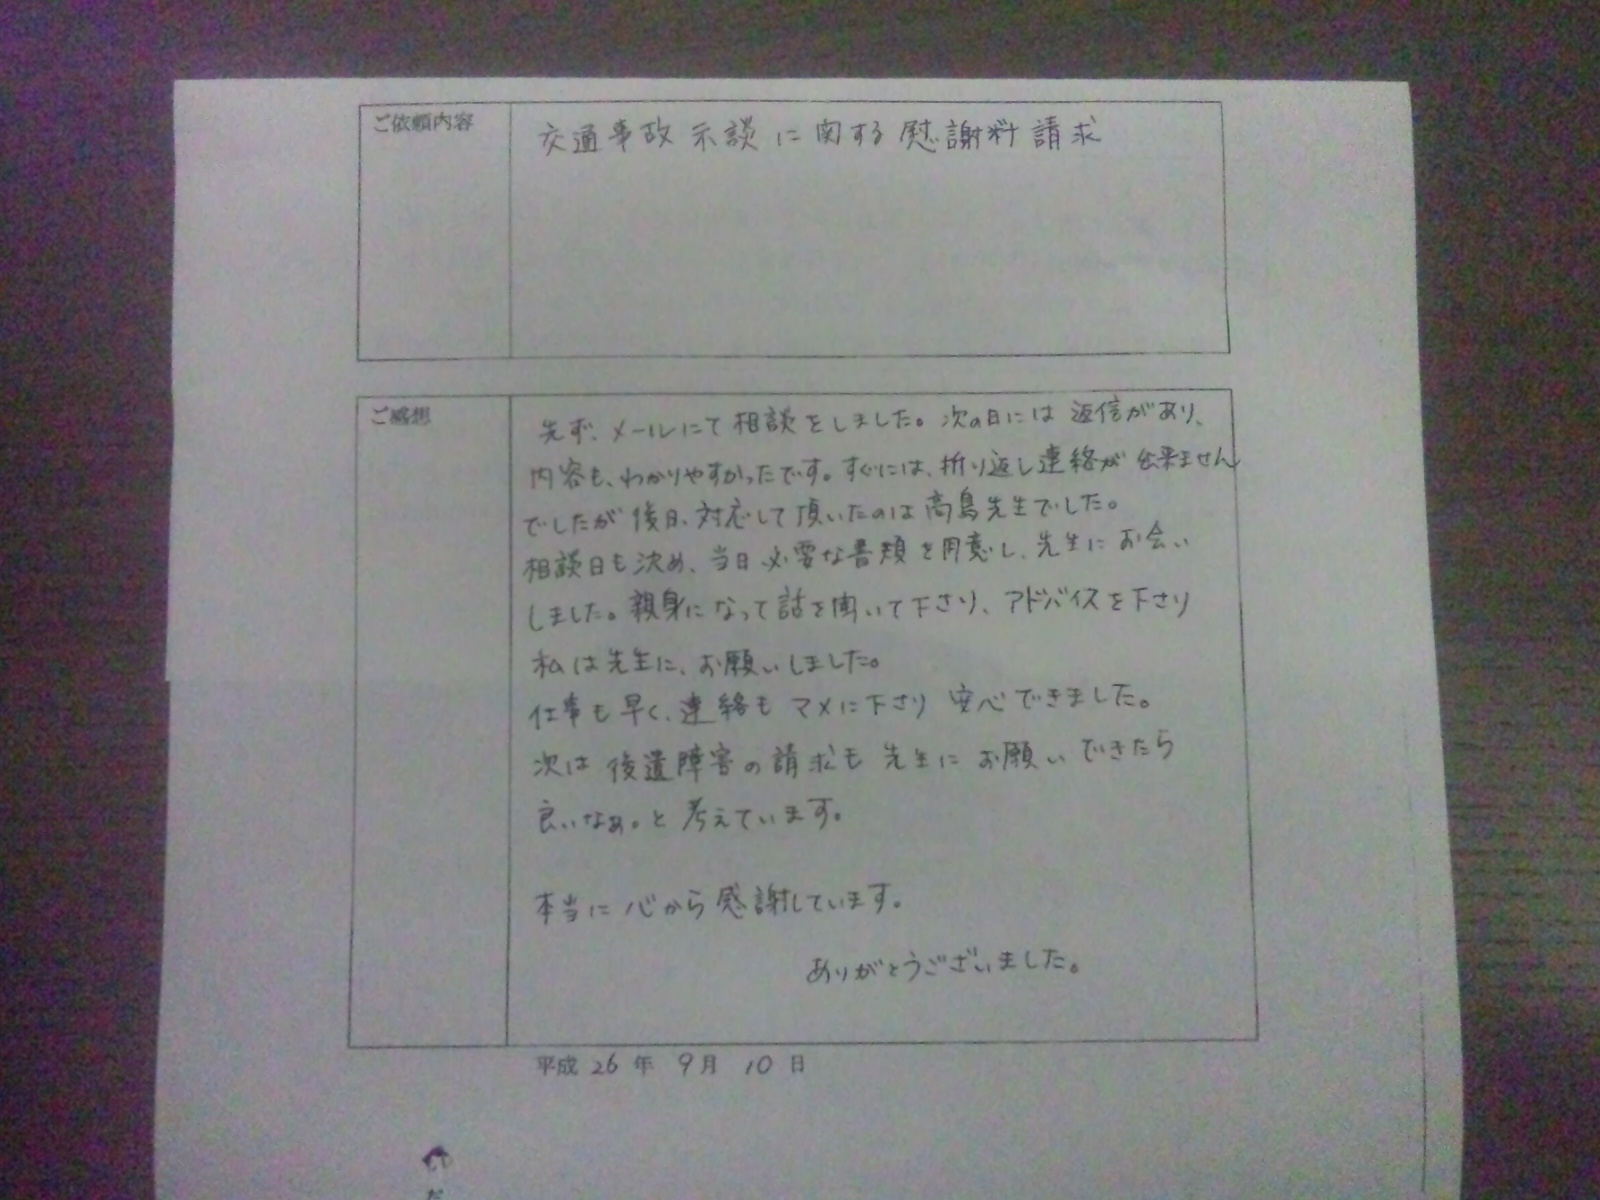 ご依頼内容
交通事故示談に関する慰謝料請求
ご感想
先ず、メールにて相談をしました。次の日には返信があり、
内容も、わかりやすかったです。すぐには、折り返し連絡が出来ません
でしたが後日、対応して頂いたのは高島先生でした。
相談日も決め、当日必要な書類を用意し、先生にお会い
しました。親身になって話を聞いて下さり、アドバイスを下さり
私は先生に、お願いしました。
仕事も早く、連絡もマメに下さり安心できました。
次は後遺障害の請求も先生にお願いできたら
良いなぁ。と考えています。
本当に心から感謝しています。
ありがとうございました。
平成26年9月10日